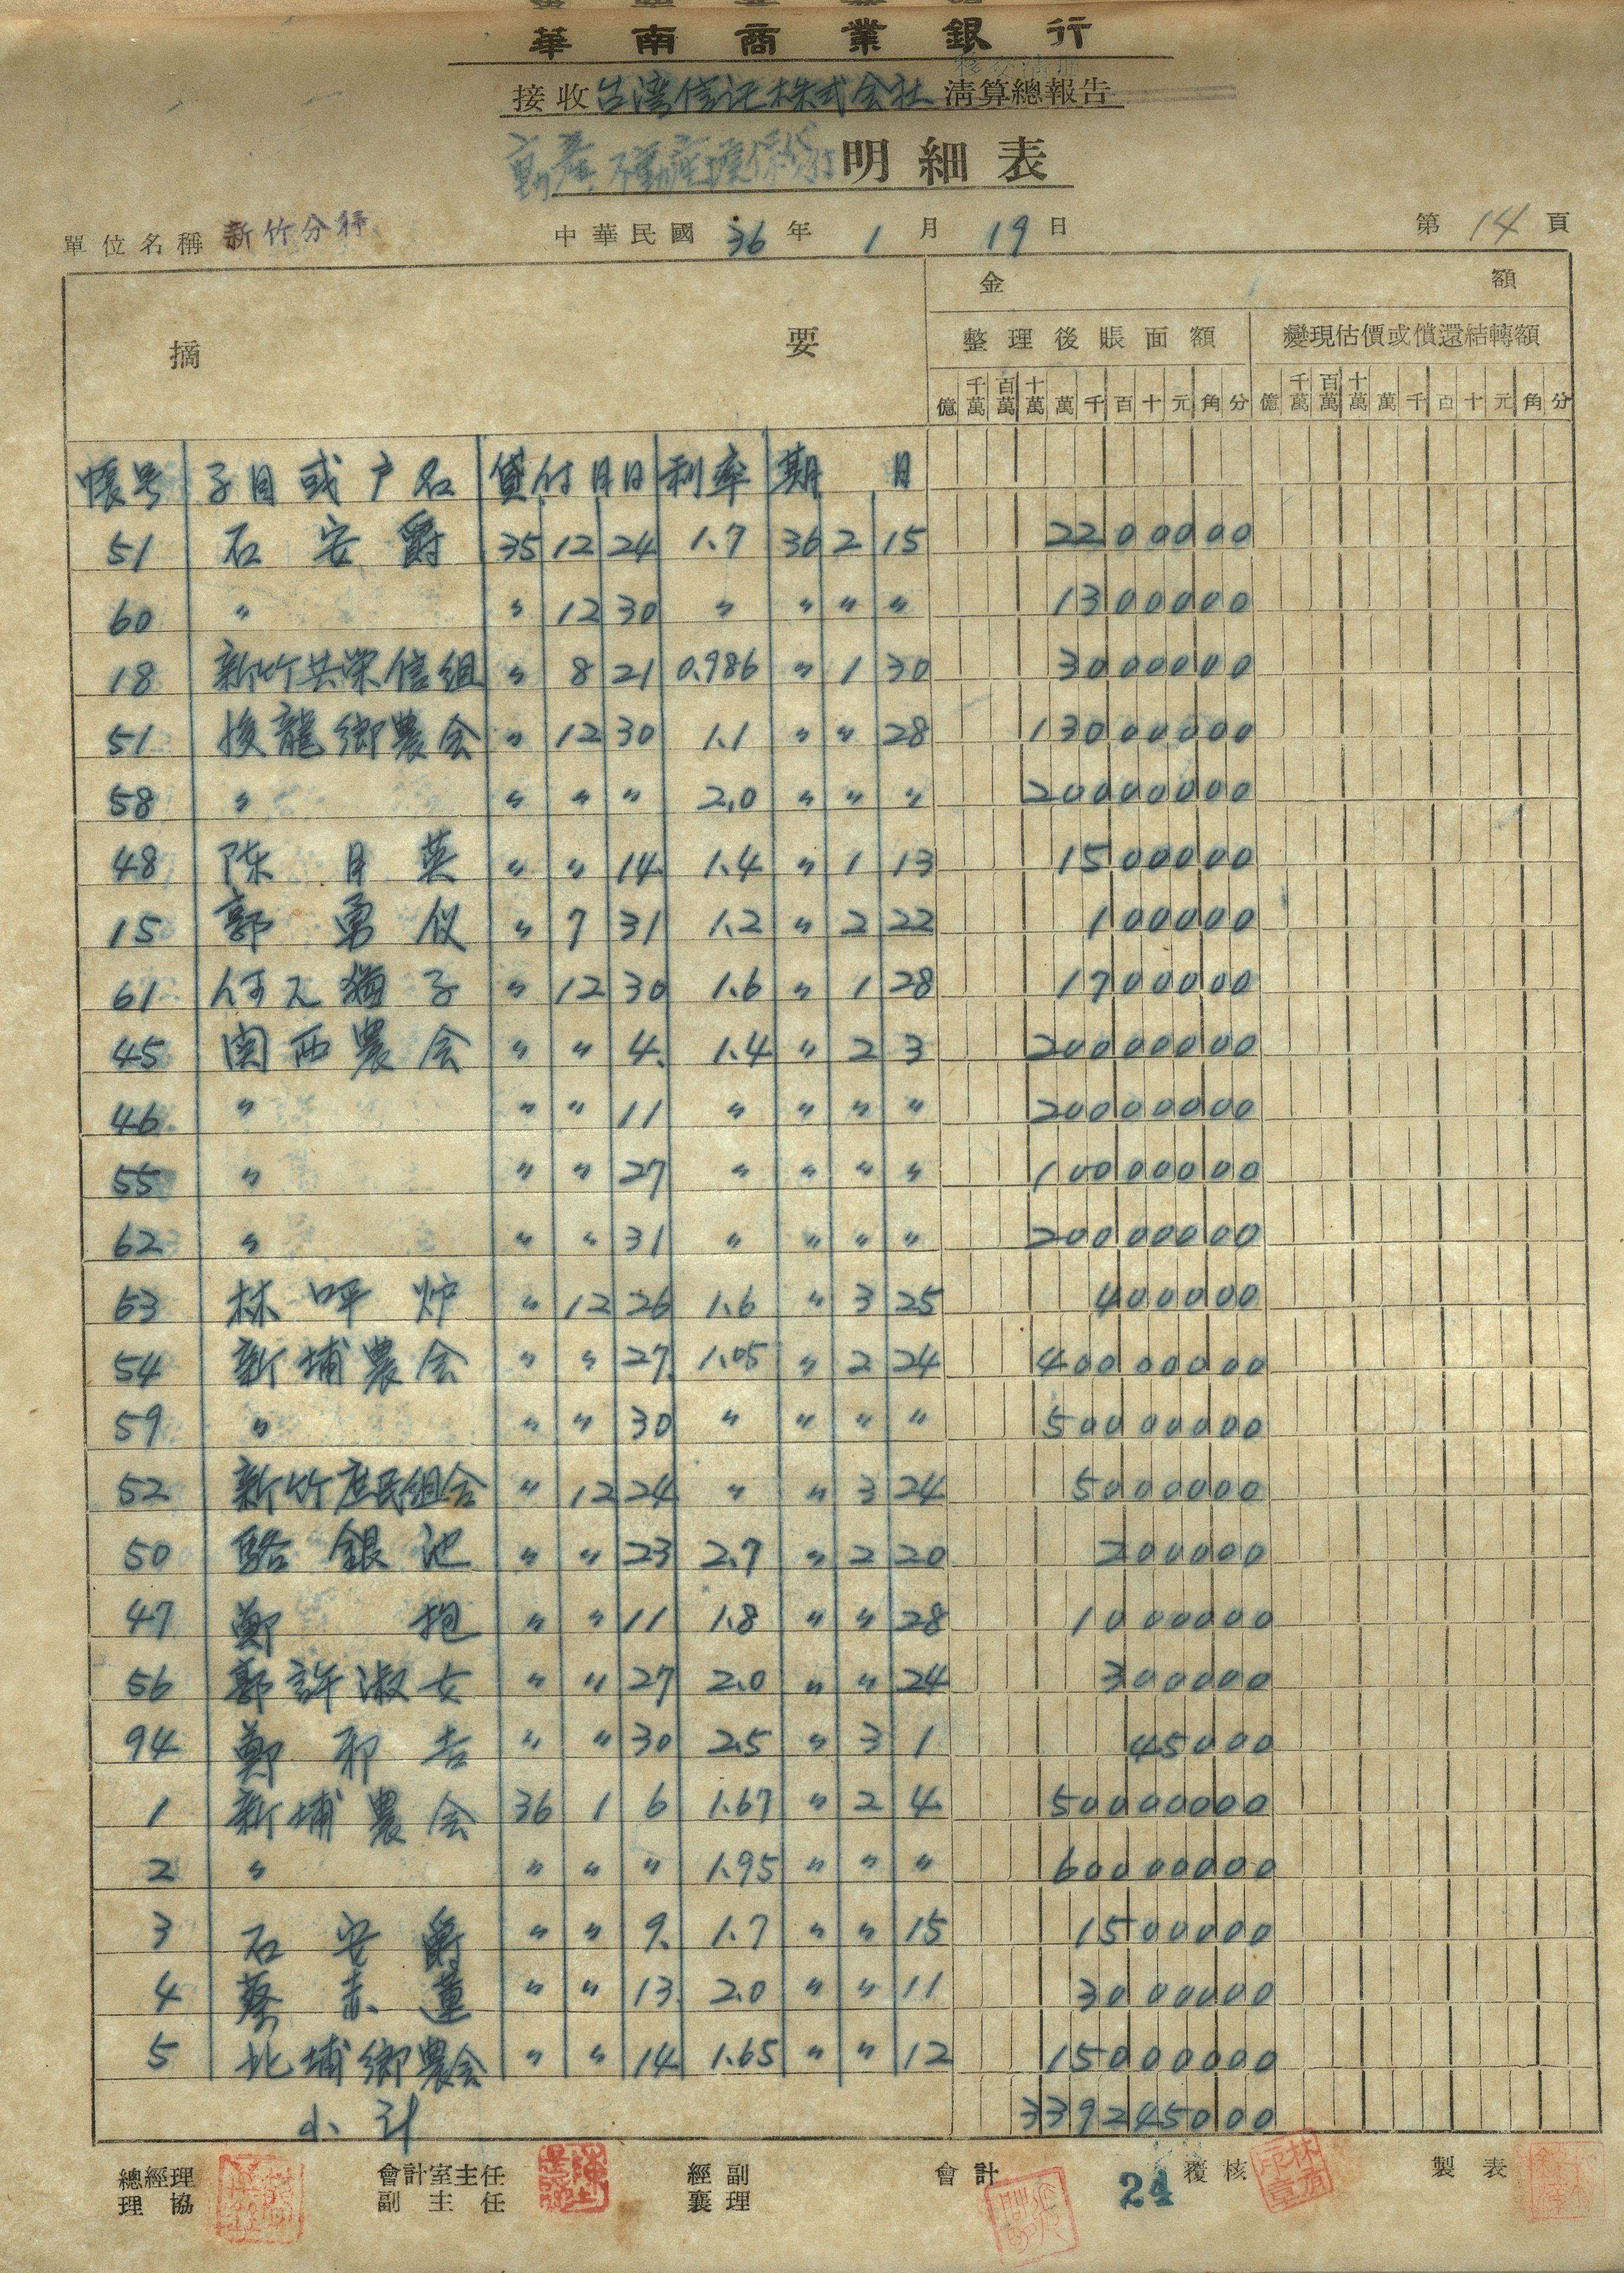 華南商業銀行
接收台湾信託株式会社清算總報告
動產不動產擔保貸付明細表
單位名稱 新竹分行 中華民國 36 年 1 月 19 日 第 14 頁
摘要 金額
整理後賬面額 變現估價或償還結轉額
億 千萬 百萬 十萬 萬 千 百 十 元 角 分 億 千萬 百萬 十萬 萬 千 百 十 元 角 分
帳号 子目或户名 貸付月日 利率 期月
51 石安爵 35 12 24 1.7 36 2 15 2200000
60 〃 〃 12 30 〃 〃 〃 〃 1300000
18 新竹共栄信組 〃 8 21 0.986 〃 1 30 3000000
51 後龍鄉農会 〃 12 30 1.1 〃 〃 28 13000000
58 〃 〃 〃 〃 2.0 〃 〃 〃 20000000
48 陈月英 〃 〃 14 1.4 〃 1 13 1500000
15 郭勇仪 〃 7 31 1.2 〃 2 22 100000
61 何天猶子 〃 12 30 1.6 〃 1 28 1700000
45 関西農会 〃 〃 4. 1.4 〃 2 3 20000000
46 〃 〃 〃 11 〃 〃 〃 〃 20000000
55 〃 〃 〃 27 〃 〃 〃 〃 10000000
62 〃 〃 〃 31 〃 〃 〃 〃 20000000
63 林呯炉 〃 12 26 1.6 〃 3 25 400000
54 新埔農会 〃 〃 27. 1.05 〃 2 24 40000000
59 〃 〃 〃 30 〃 〃 〃 〃 50000000
52 新竹庶民組合 〃 12 24 〃 〃 3 24 5000000
50 駱銀池 〃 〃 23 2.7 〃 2 20 200000
47 鄭抱 〃 〃 11 1.8 〃 〃 28 1000000
56 郭許淑女 〃 〃 27 2.0 〃 〃 24 300000
94 鄭邦吉 〃 〃 30 2.5 〃 3 1 45000
1 新埔農会 36 1 6 1.67 〃 2 4. 50000000
2 〃 〃 〃 〃 1.95 〃 〃 〃 60000000
3 石安爵 〃 〃 9. 1.7 〃 〃 15 1500000
4 蔡赤蓮 〃 〃 13. 2.0 〃 〃 11 3000000
5 北埔鄉農会 〃 〃 14 1.65 〃 〃 12 15000000
小計 339245000
總經理 會計室主任 經副 會計 24 覆核 製表
理協 副主任 襄理